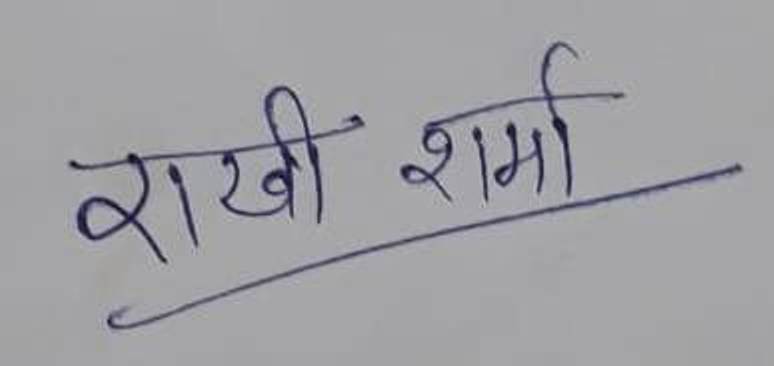 राखी शर्मा